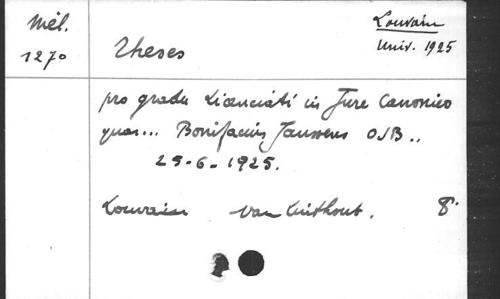 Mél.
1270
Louvain
Univ. 1925
Theses
pro gradu Licenciati in Jure Canonico
quas... Bonifacius Janssens OSB..
25-6-1925.
Louvain van Linthout. 8°